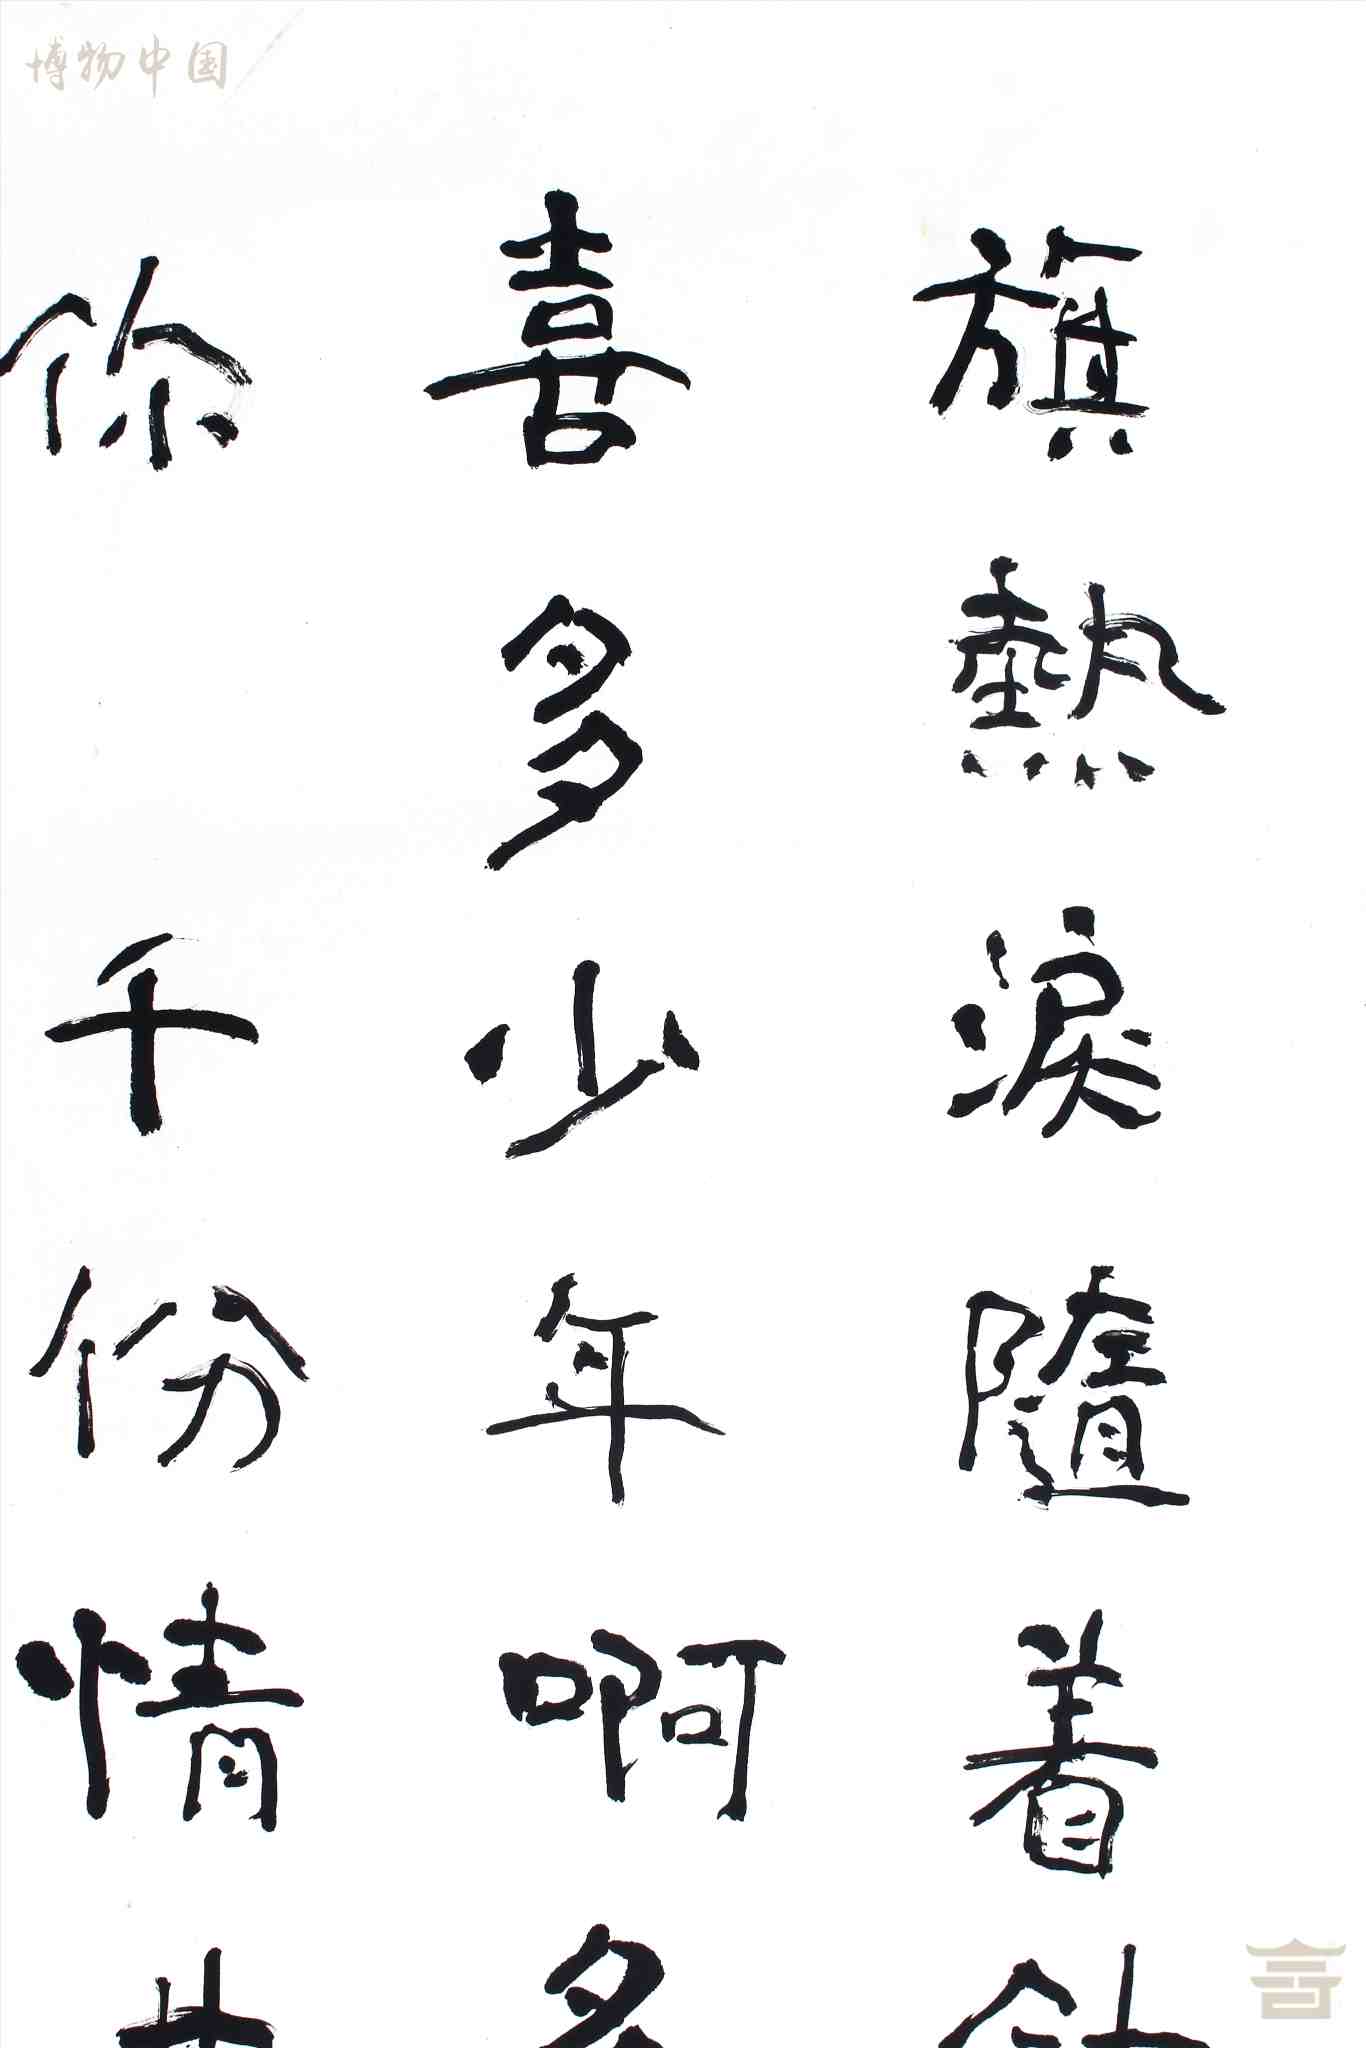 博物中国
旗熱淚隨着
喜多少年啊多
你千份情